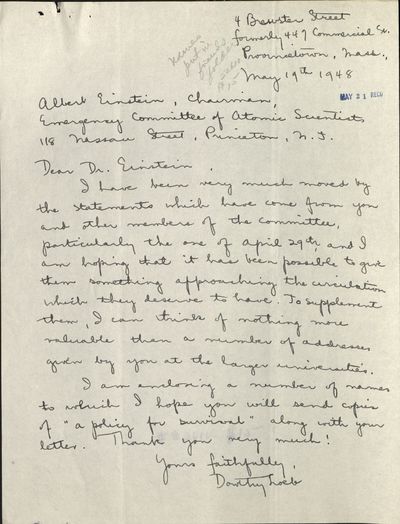 4 Brewster Street
formerly 447 Commercial St.
Provincetown, Mass.,
May 19th 1948
MAY 21 RECD
Albert Einstein, Chairman,
Emergency Committee of Atomic Scientists
118 Nassau Street, Princeton, N. J.
Dear Dr. Einstein,
I have been very much moved by
the statements which have come from you
and other members of the committee,
particularly the one of April 29th, and I
am hoping that it has been possible to give
them something approaching the circulation
which they deserve to have. To supplement
them, I can think of nothing more
valuable than a number of addresses
given by you at the larger universities.
I am enclosing a number of names
to which I hope you will send copies
of "a policy for survival" along with your
letter. Thank you very much!
Yours faithfully,
Dorothy Loeb